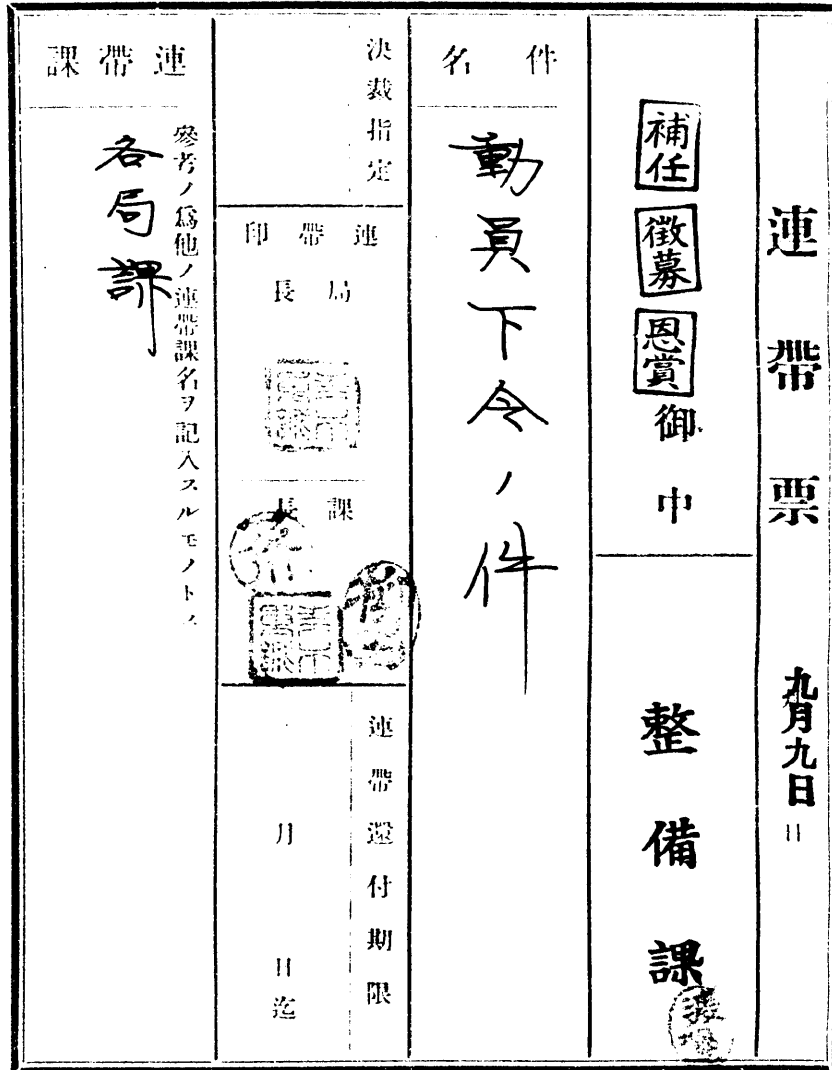 連帶票
九月九日
日
補任
徵募
恩賞
御中
整備課
件名
動員下令ノ件
決裁指定
連帶印
局長
課長
連帶還付期限
月 日迄
連帶課
參考ノ爲他ノ連帶課名ヲ記入スルモノトス
各局課